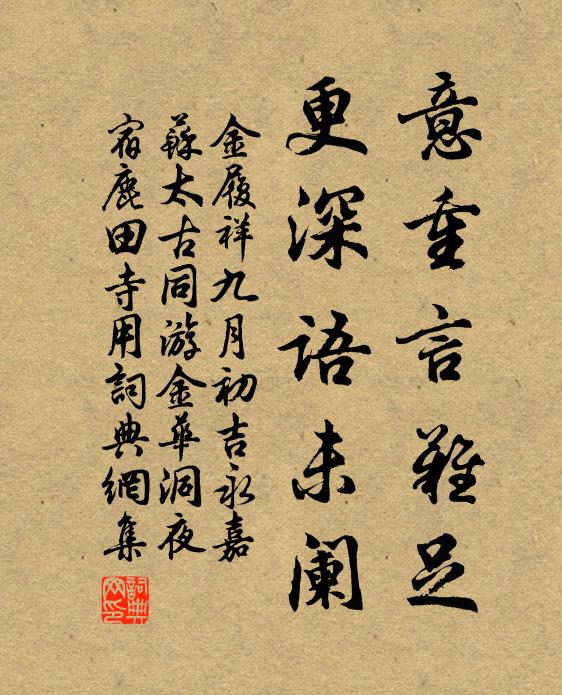 意重言難足
更深語未阑
金履祥九月初吉永嘉
蘇太古同游金華洞夜
宿鹿田寺用詞典網集
詞典网印